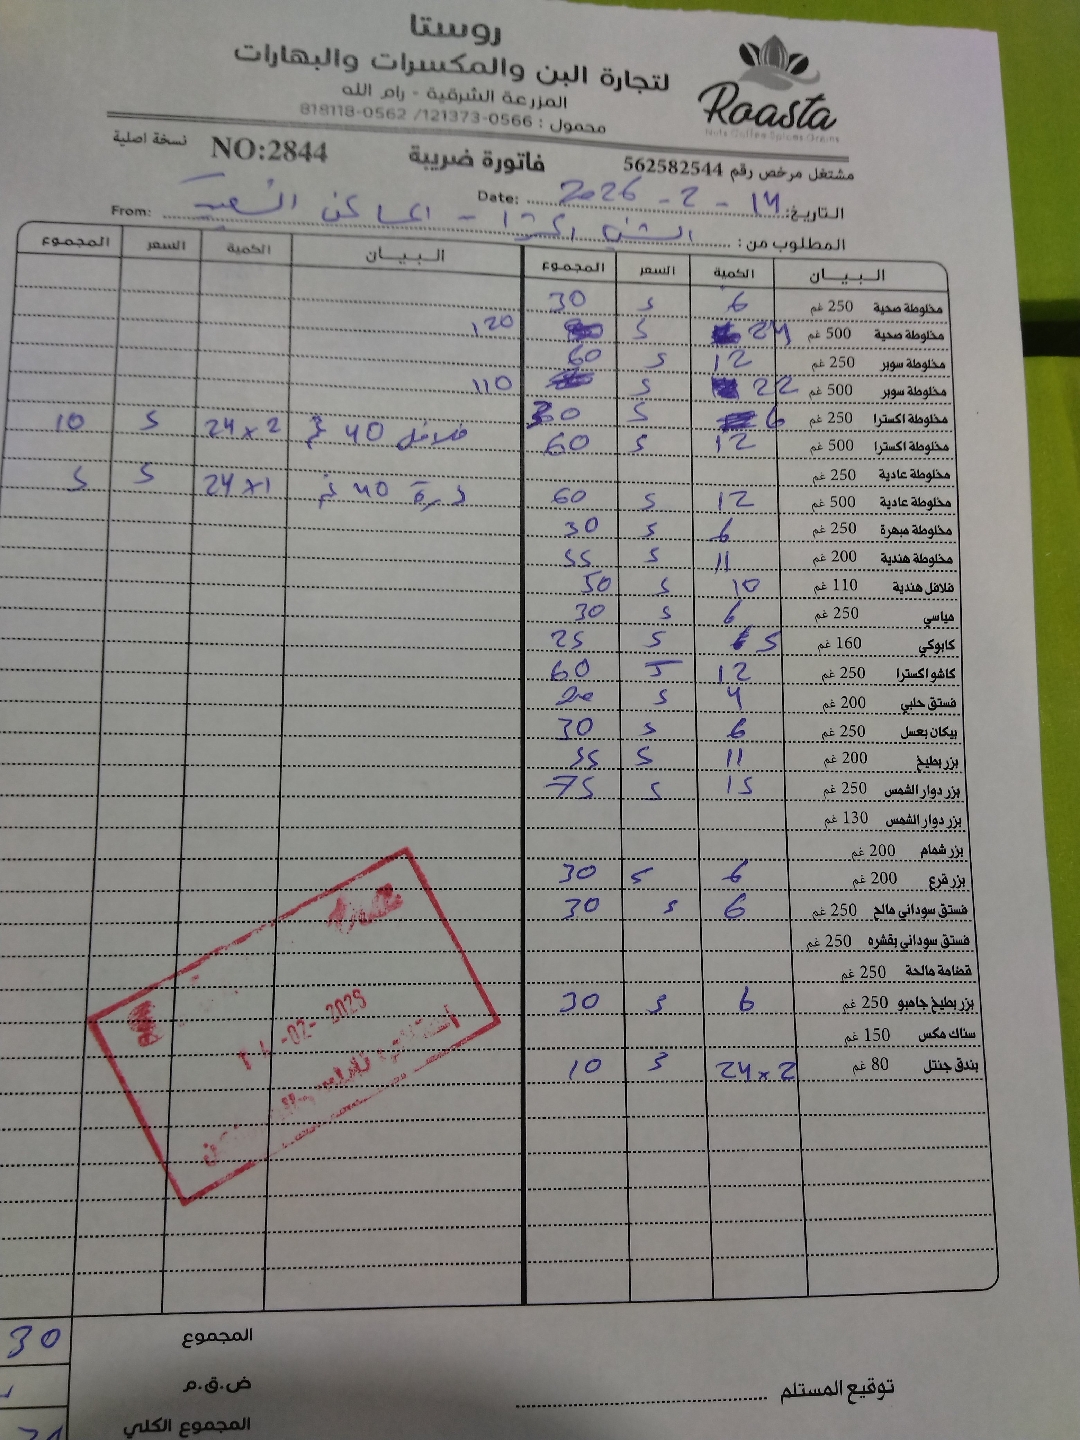 روستا
لتجارة البن والمكسرات والبهارات
المزرعة الشرقية - رام الله
محمول : 0566-121373/ 0562-818118
Roasta
Nuts Coffee Spices Grains
مشتغل مرخص رقم 562582544
فاتورة ضريبة
NO:2844
نسخة اصلية
التاريخ: 14 - 2 - 2026 Date:
المطلوب من: From:
البـيـــان الكمية السعر المجموع البـيـــان الكمية السعر المجموع
مخلوطة صحية 250 غم 6 5 30
مخلوطة صحية 500 غم 24 5 120
مخلوطة سوبر 250 غم 12 5 60
مخلوطة سوبر 500 غم 22 5 110
مخلوطة اكسترا 250 غم 6 5 30 فلافل 40 غم 24x2 5 10
مخلوطة اكسترا 500 غم 12 5 60
مخلوطة عادية 250 غم ذرة 40 غم 24x1 5 5
مخلوطة عادية 500 غم 12 5 60
مخلوطة مبهرة 250 غم 6 5 30
مخلوطة هندية 200 غم 11 5 55
فلافل هندية 110 غم 10 5 50
مياسي 250 غم 6 5 30
كابوكي 160 غم 5 5 25
كاشو اكسترا 250 غم 12 5 60
فستق حلبي 200 غم 4 5 20
بيكان بعسل 250 غم 6 5 30
بزر بطيخ 200 غم 11 5 55
بزر دوار الشمس 250 غم 15 5 75
بزر دوار الشمس 130 غم
بزر شمام 200 غم
بزر قرع 200 غم 6 5 30
فستق سوداني مالح 250 غم 6 5 30
فستق سوداني بقشره 250 غم
قضامة مالحة 250 غم
بزر بطيخ جامبو 250 غم 6 5 30
سناك مكس 150 غم
بندق جنتل 80 غم 24x2 5 10
المجموع 30
ض.ق.م
المجموع الكلي
توقيع المستلم